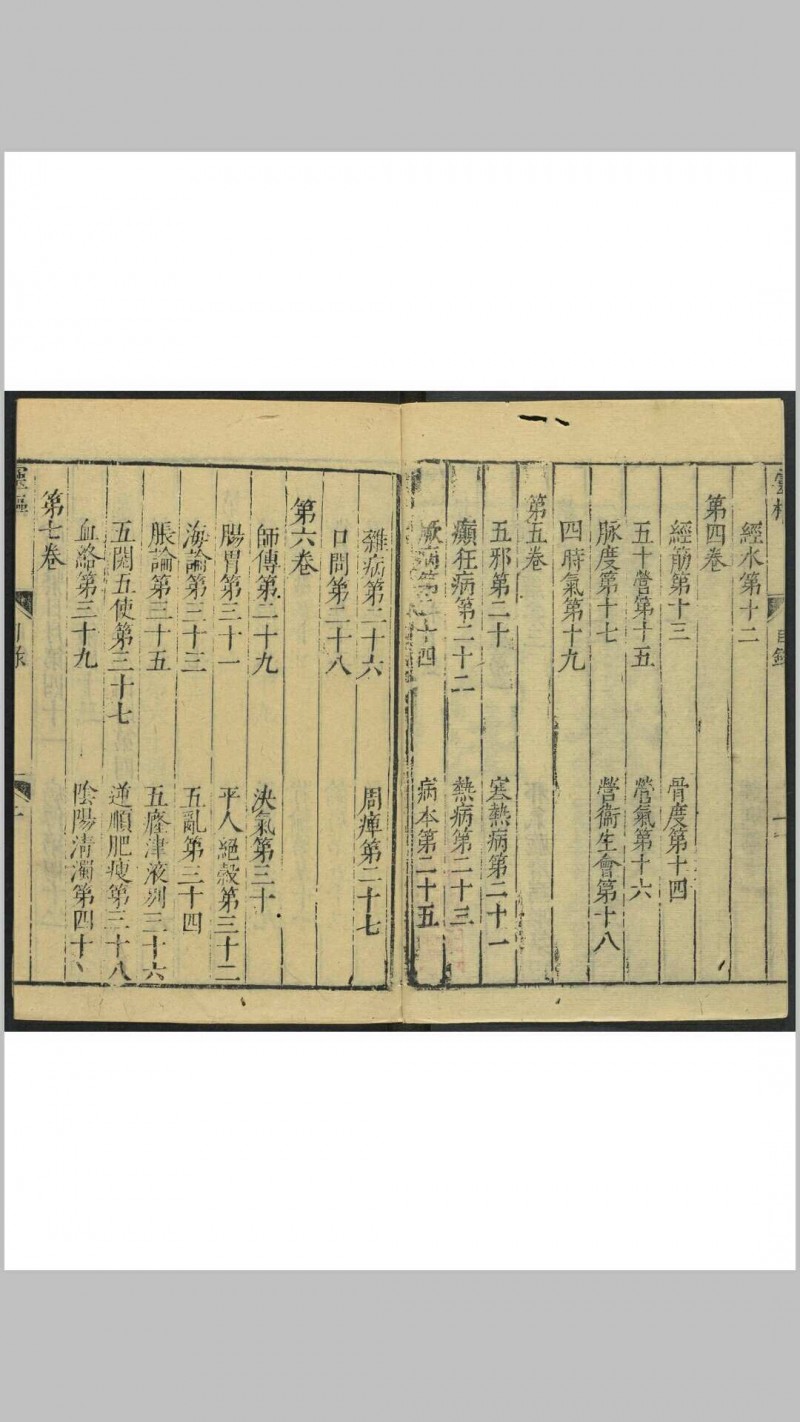 靈樞
目錄
經水第十二
第四卷
經筋第十三
骨度第十四
五十營第十五
營氣第十六
脉度第十七
營衞生會第十八
四時氣第十九
第五卷
五邪第二十
寒熱病第二十一
癲狂病第二十二
熱病第二十三
厥病第二十四
病本第二十五
雜病第二十六
周痺第二十七
口問第二十八
第六卷
師傳第二十九
決氣第三十
腸胃第三十一
平人絕穀第三十二
海論第三十三
五亂第三十四
脹論第三十五
五癃津液別三十六
五閱五使第三十七
逆順肥瘦第三十八
血絡第三十九
陰陽淸濁第四十
第七卷
靈樞
目錄